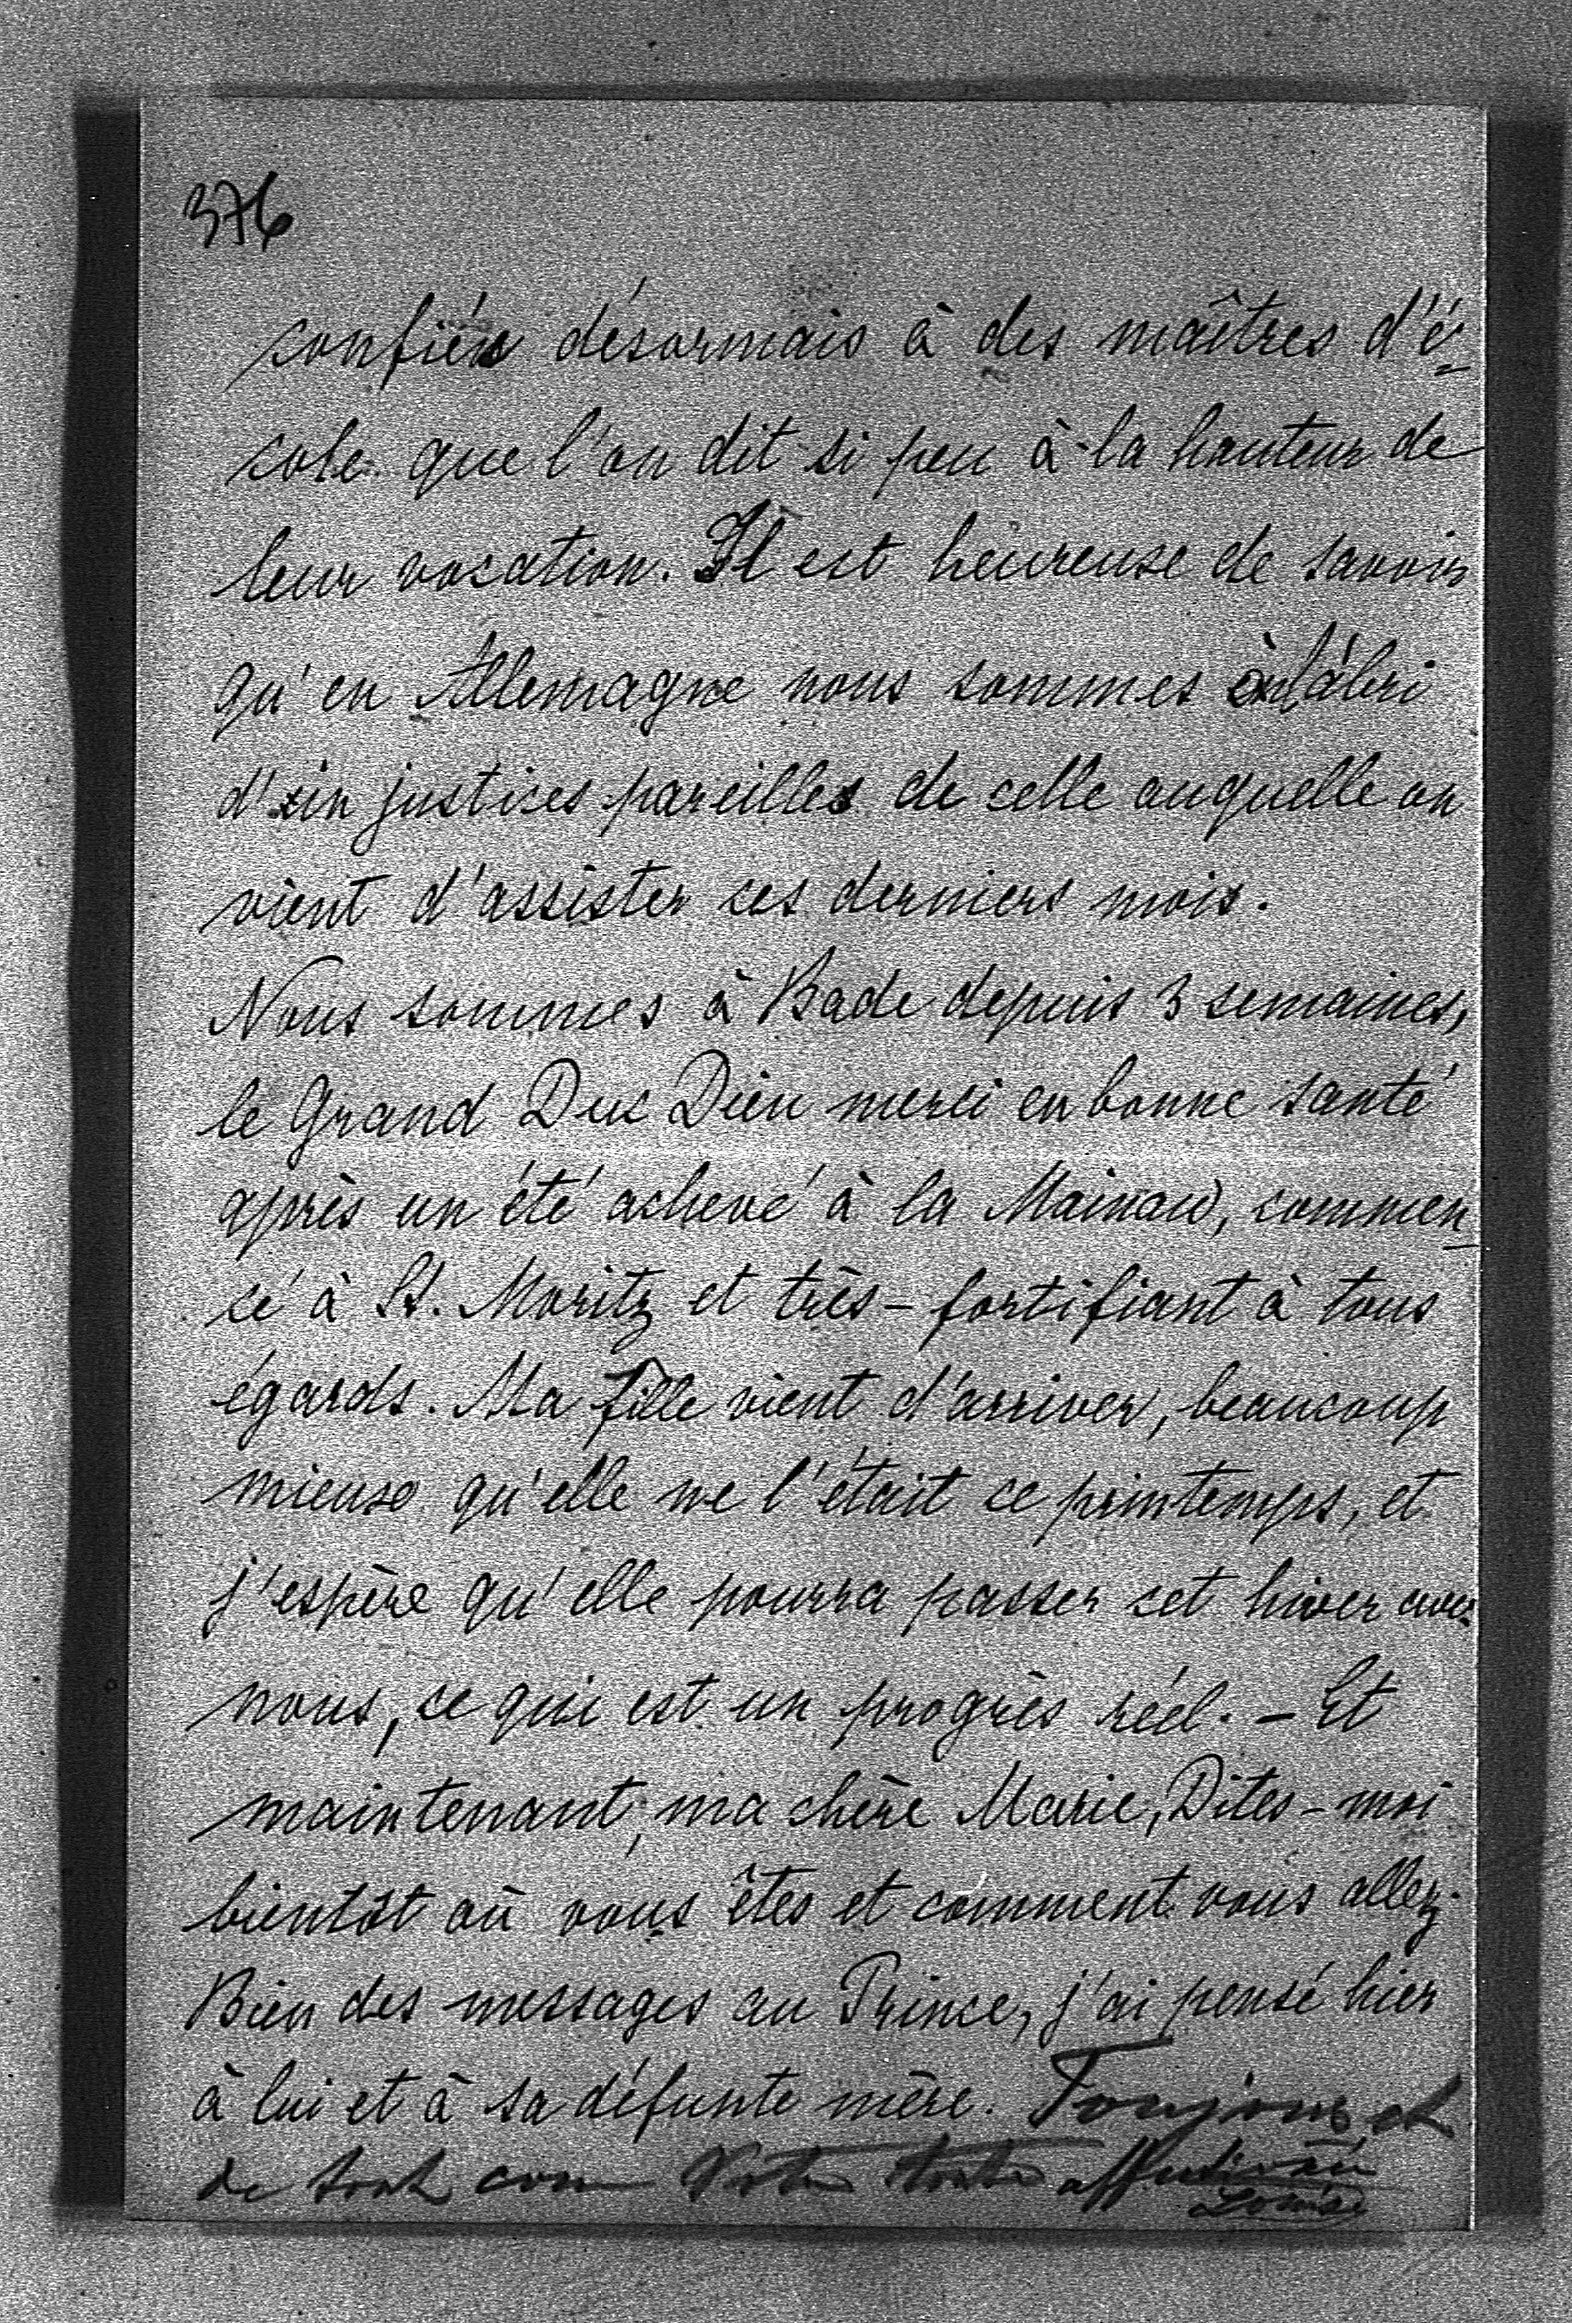 376
confiés désormais à des maîtres d'é=
cole que l'on dit si peu à la hauteur de
leur vocation. Il est heureuse de savoir
qu'en Allemagne nous sommes à l'abri
d'injustices pareilles de celle auquelle on
vient d'assister ces derniers mois.
Nous sommes à Bade depuis 3 semaines,
le Grand Duc Dieu merci en bonne santé
après un été achevé à la Mainau, commen_
cé à St. Moritz et très-fortifiant à tous
égards. Ma fille vient d'arriver, beaucoup
mieuse qu'elle ne l'était ce printemps, et
j'espère qu'elle pourra passer cet hiver avec
nous, ce qui est un progrès réel. - Et
maintenant, ma chère Marie, Dites-moi
bientôt où vous êtes et comment vous allez.
Bien des messages au Prince, j'ai pensé hier
à lui et à sa défunte mère. Toujours et
de tout cœur Votre toute affectionnée
Louise